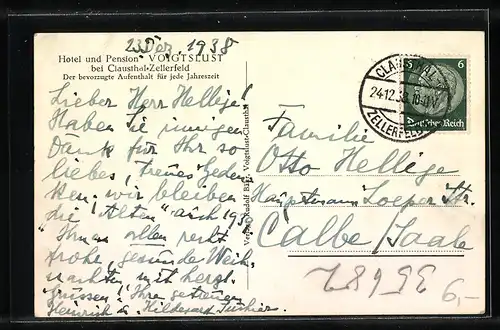 23 Dez. 1938
Hotel und Pension VOIGTSLUST
bei Clausthal-Zellerfeld
Der bevorzugte Aufenthalt für jede Jahreszeit
Lieber Herr Hellige!
Haben Sie innigen
Dank für Ihr so
liebes, treues Geden-
ken. wir bleiben
die "Alten" auch
Ihnen allen recht
frohe, gesunde Weih-
nachten mit herzl.
Grüssen! Ihre getreuen
Heinrich u. Hildegard
Verlag Rudolf Voigtslust-Clausthal
CLAUSTHAL-
24.12.38.
ZELLERFELD
6
Deutsches Reich
Familie
Otto Hellige
Hauptmann Loeper Str.
Calbe/Saale
33681
6,-